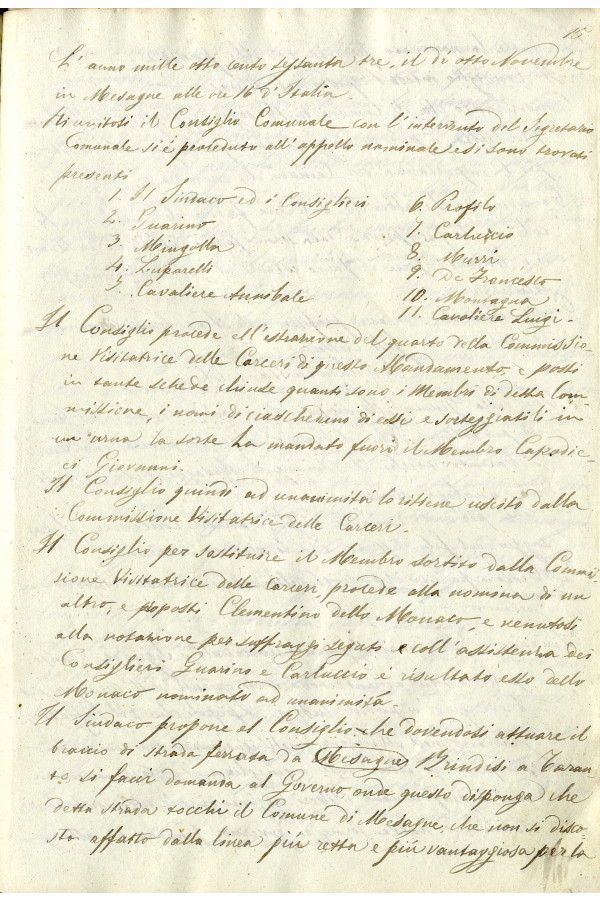 15.
L' anno mille otto cento sessanta tre, il dì otto Novembre
in Mesagne alle ore 16 d'Italia.
Riunitosi il Consiglio Comunale con l'intervento del Segretario
Comunale si é proceduto all'appello nominale e si sono trovati
presenti
1. Il Sindaco ed i Consiglieri
2. Guarino
3. Mingolla
4. Luparelli
5. Cavaliere Annibale
6. Profilo
7. Carluccio
8. Murri
9. De Francesco
10. Montagna
11. Cavaliere Luigi.
Il Consiglio procede all'estrazione del quarto della Commissio-
ne Visitatrice delle Carceri di questo Mandamento, e posti
in tante schede chiuse quanti sono i Membri di detta Com-
missione, i nomi di ciascheduno di essi e sorteggiatili in
un'urna la sorte ha mandato fuori il Membro Capodie-
ci Giovanni.
Il Consiglio quindi ad unanimitá lo ritiene uscito dalla
Commissione Visitatrice delle Carceri.
Il Consiglio per sostituire il Membro sortito dalla Commis-
sione Visitatrice delle Carceri, procede alla nomina di un
altro, e proposti Clementino dello Monaco, e venutosi
alla votazione per suffraggi segreti e coll'assistenza dei
Consiglieri Guarino e Carluccio é risultato esso dello
Monaco nominato ad unanimitá.
Il Sindaco propone al Consiglio che dovendosi attuare il
braccio di strada ferrata da Mesagne Brindisi a Taran-
to si facci domanda al Governo, onde questo disponga che
detta strada tocchi il Comune di Mesagne, che non si disco-
sta affatto dalla linea piú retta e piú vantaggiosa per la